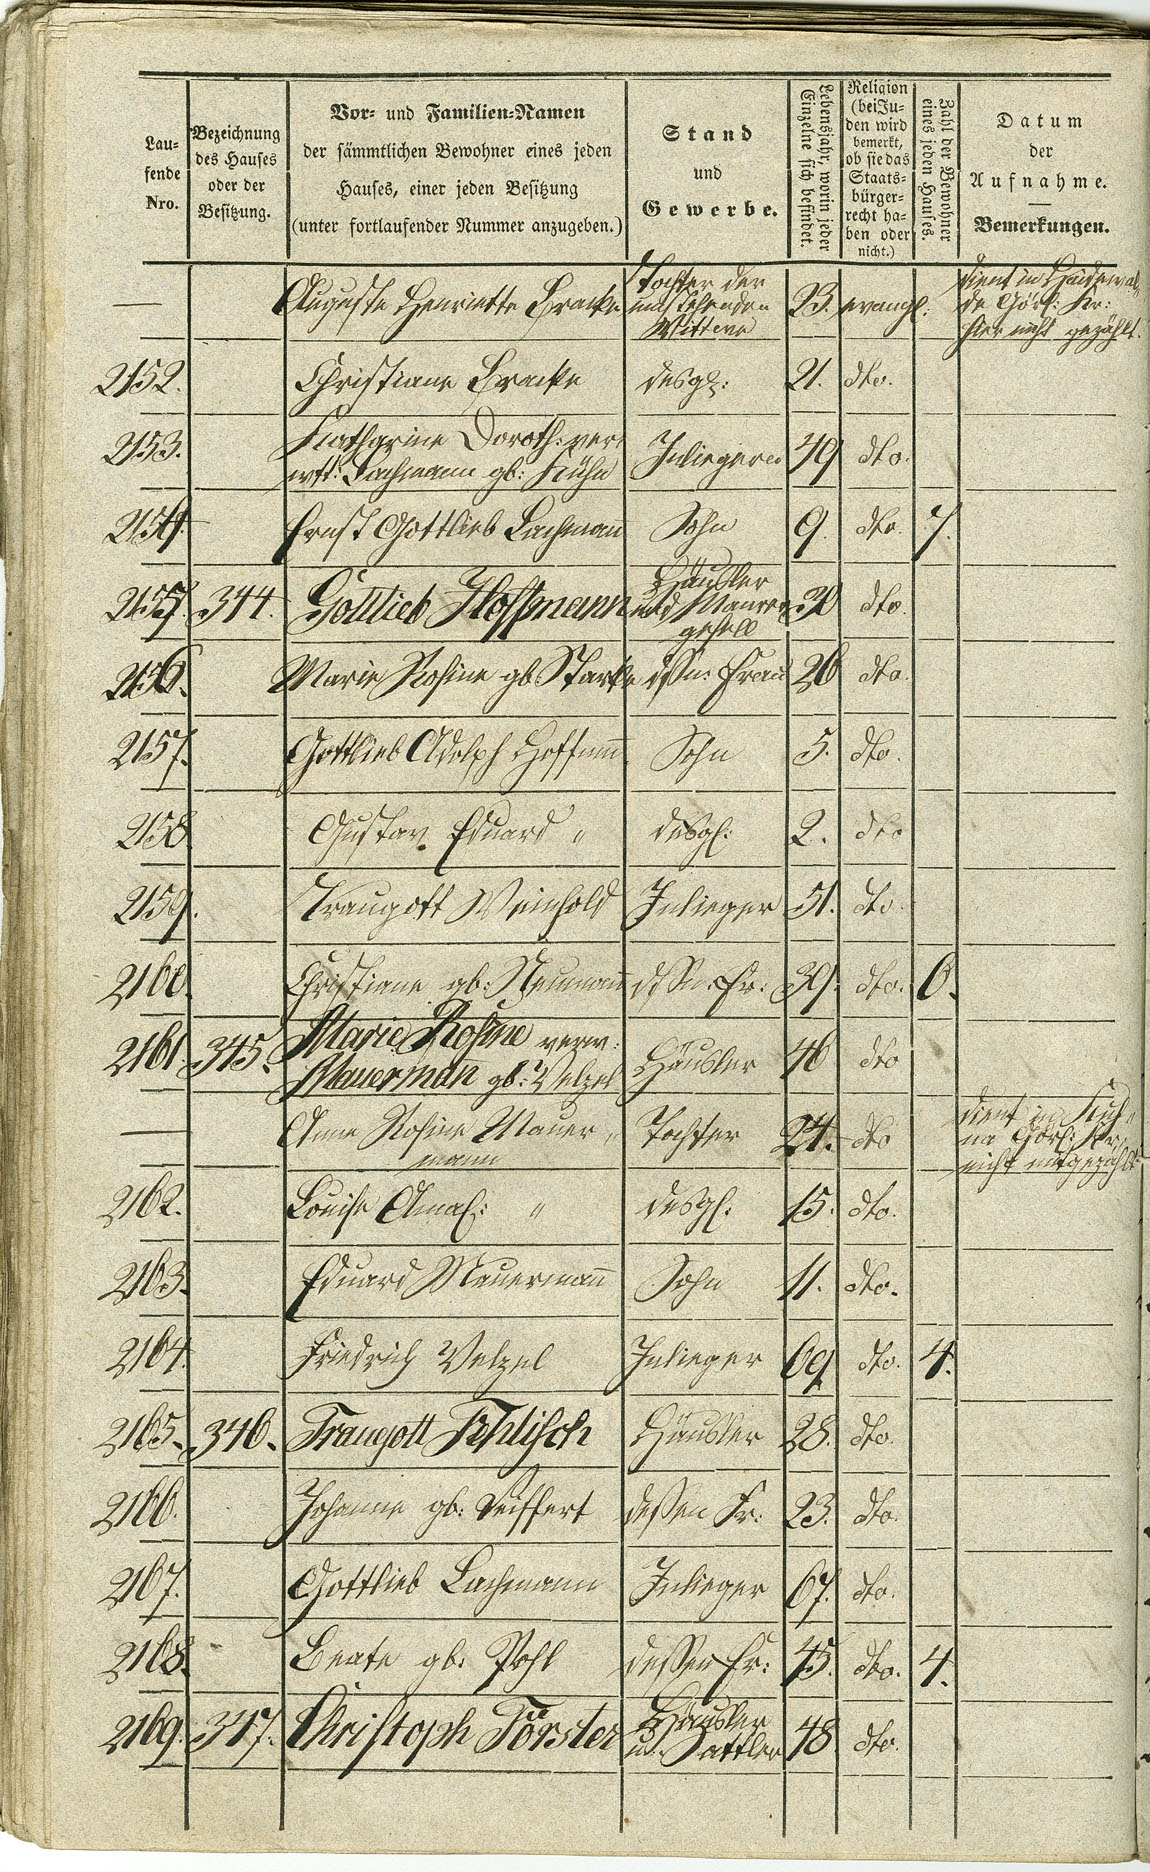 Lau-
fende
Nro.
Bezeichnung
des Hauses
oder der
Besitzung.
Vor- und Familien-Namen
der sämmtlichen Bewohner eines jeden
Hauses, einer jeden Besitzung
(unter fortlaufender Nummer anzugeben.)
Stand
und
Gewerbe.
Lebensjahr, worin jeder
Einzelne sich befindet.
Religion
(bei Ju-
den wird
bemerkt,
ob sie das
Staats-
bürger-
recht ha-
ben oder
nicht.)
Zahl der Bewohner
eines jeden Hauses.
Datum
der
Aufnahme.
Bemerkungen.
— Auguste Henriette Bracke Tochter der
Wittwe 23. evangl.
dient in
de Görl: Kr:
hier nicht gezählt.
2152. Christiane Bracke desgl: 21. dto.
2153. Katharine Doroth: ver-
wtt: Lachmann gb: Kühn Inliegerin 49 dto.
2154. Ernst Gottlieb Lachmann Sohn 9. dto. 7.
2155. 344. Gottlieb Hoffmann Häusler
und Maurer-
gesell 30 dto.
2156. Marie Rosine gb: Starke dssn: Frau 26 dto.
2157. Gottlieb Adolph Hoffmann Sohn 5. dto.
2158 Gustav Eduard " desgl: 2. dto
2159. Traugott Weinhold Inlieger 51. dto.
2160. Christiane gb: Neumann dssn: Fr: 39. dto. 6.
2161. 345. Marie Rosine verw:
Mauermann gb: Velzel Häusler 46 dto
— Anne Rosine Mauer-
mann Tochter 24. dto
dient in
na Görl: Kr,
nicht mitgezählt
2162. Louise Amal: " desgl: 15. dto.
2163. Eduard Mauermann Sohn 11. dto.
2164. Friedrich Velzel Inlieger 69 dto. 4.
2165. 346. Traugott Fehlisch Häusler 28. dto.
2166. Johanne gb: Seiffert dessen Fr: 23. dto.
2167. Gottlieb Lachmann Inlieger 67. dto.
2168. Beate gb: Pohl dessen Fr: 45. dto. 4.
2169. 347. Christoph Förster Häusler
u. Sattler 48 dto.